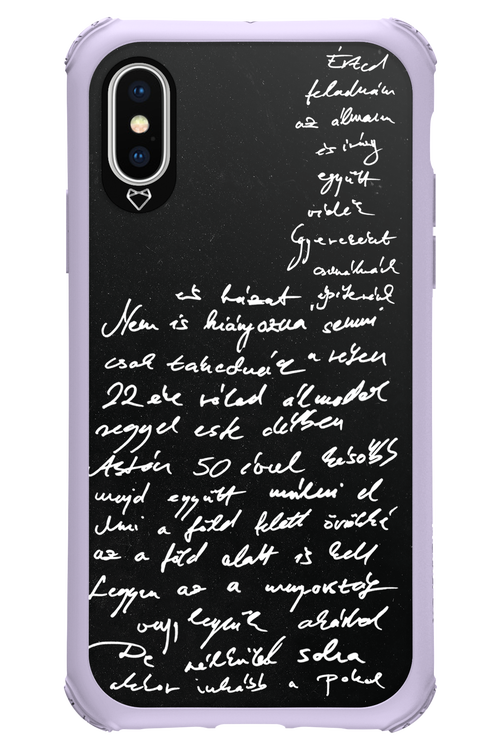 Érted
feladnám
az álmaim
és irány
együtt
vidék
Gyerekeket
csinálnánk
és házat építenénk
Nem is hiányozna semmi
csak takaródnánk a résen
22 éve rólad álmodok
reggel este délben
Aztán 50 évvel később
majd együtt múlni el
Ami a föld felett örökké
az a föld alatt is kell
Legyen az a mennyország
vagy legyünk akárhol
De nélküled soha
akkor inkább a pokol